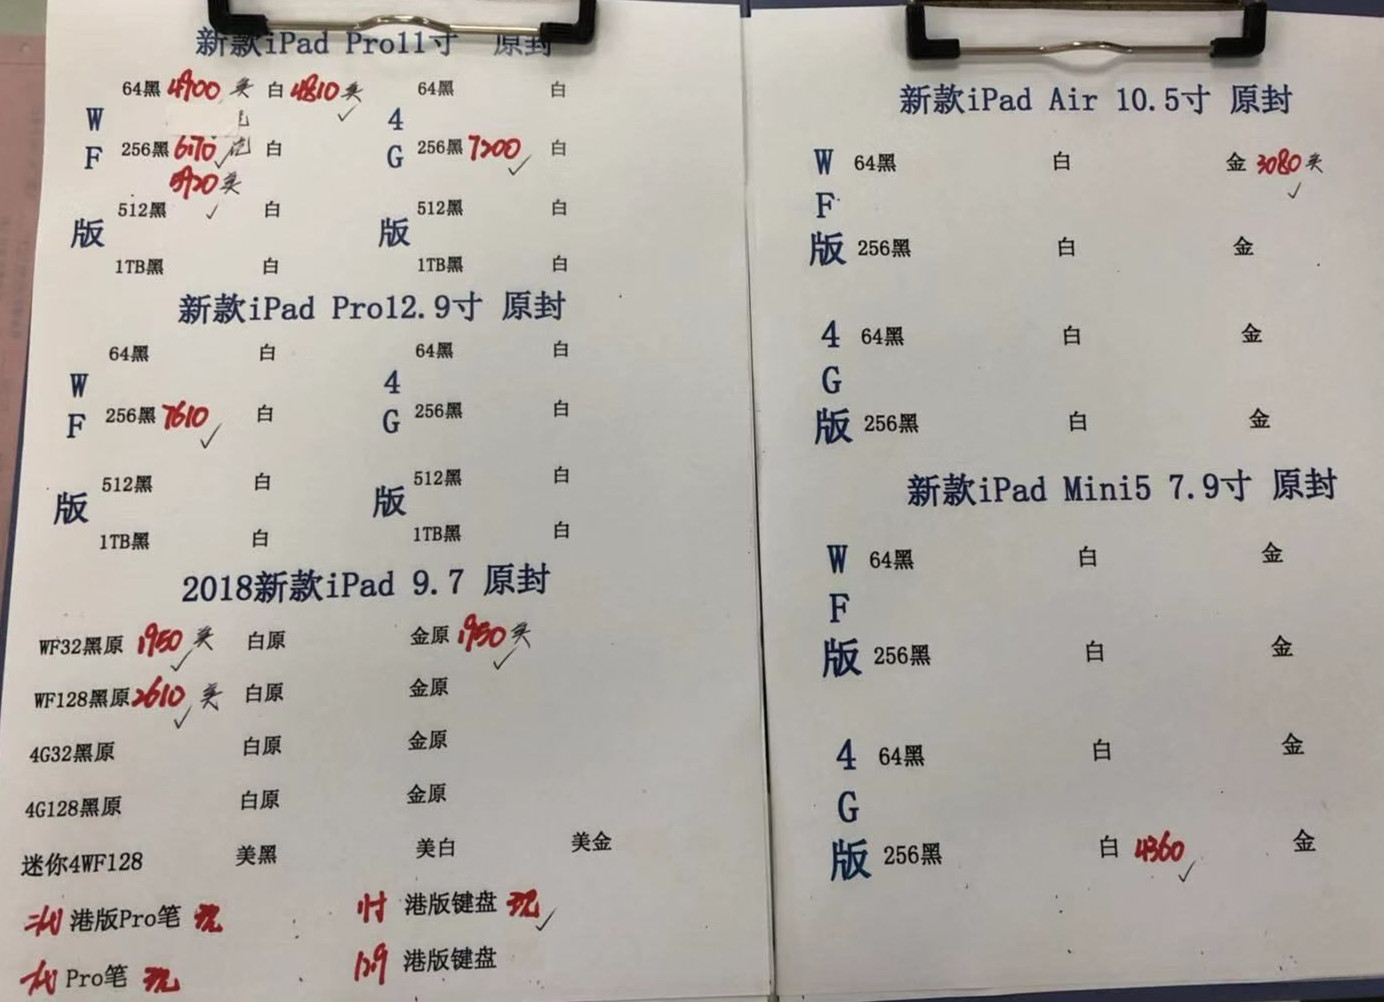 新款iPad Pro11寸 原封
64黑 4900 美 白 4810 美 64黑 白
W 4
F 256黑 6170 白 G 256黑 7200 白
5920 美
512黑 白 512黑 白
版 版
1TB黑 白 1TB黑 白
新款iPad Pro12.9寸 原封
64黑 白 64黑 白
W 4
F 256黑 7610 白 G 256黑 白
512黑 白 512黑 白
版 版
1TB黑 白 1TB黑 白
2018新款iPad 9.7 原封
WF32黑原 1950 美 白原 金原 1950 美
WF128黑原 2610 美 白原 金原
4G32黑原 白原 金原
4G128黑原 白原 金原
迷你4WF128 美黑 美白 美金
二代 港版Pro笔 现 11寸 港版键盘 现
一代 Pro笔 现 12.9 港版键盘
新款iPad Air 10.5寸 原封
W 64黑 白 金 3080 美
F
版 256黑 白 金
4 64黑 白 金
G
版 256黑 白 金
新款iPad Mini5 7.9寸 原封
W 64黑 白 金
F
版 256黑 白 金
4 64黑 白 金
G
版 256黑 白 4360 金